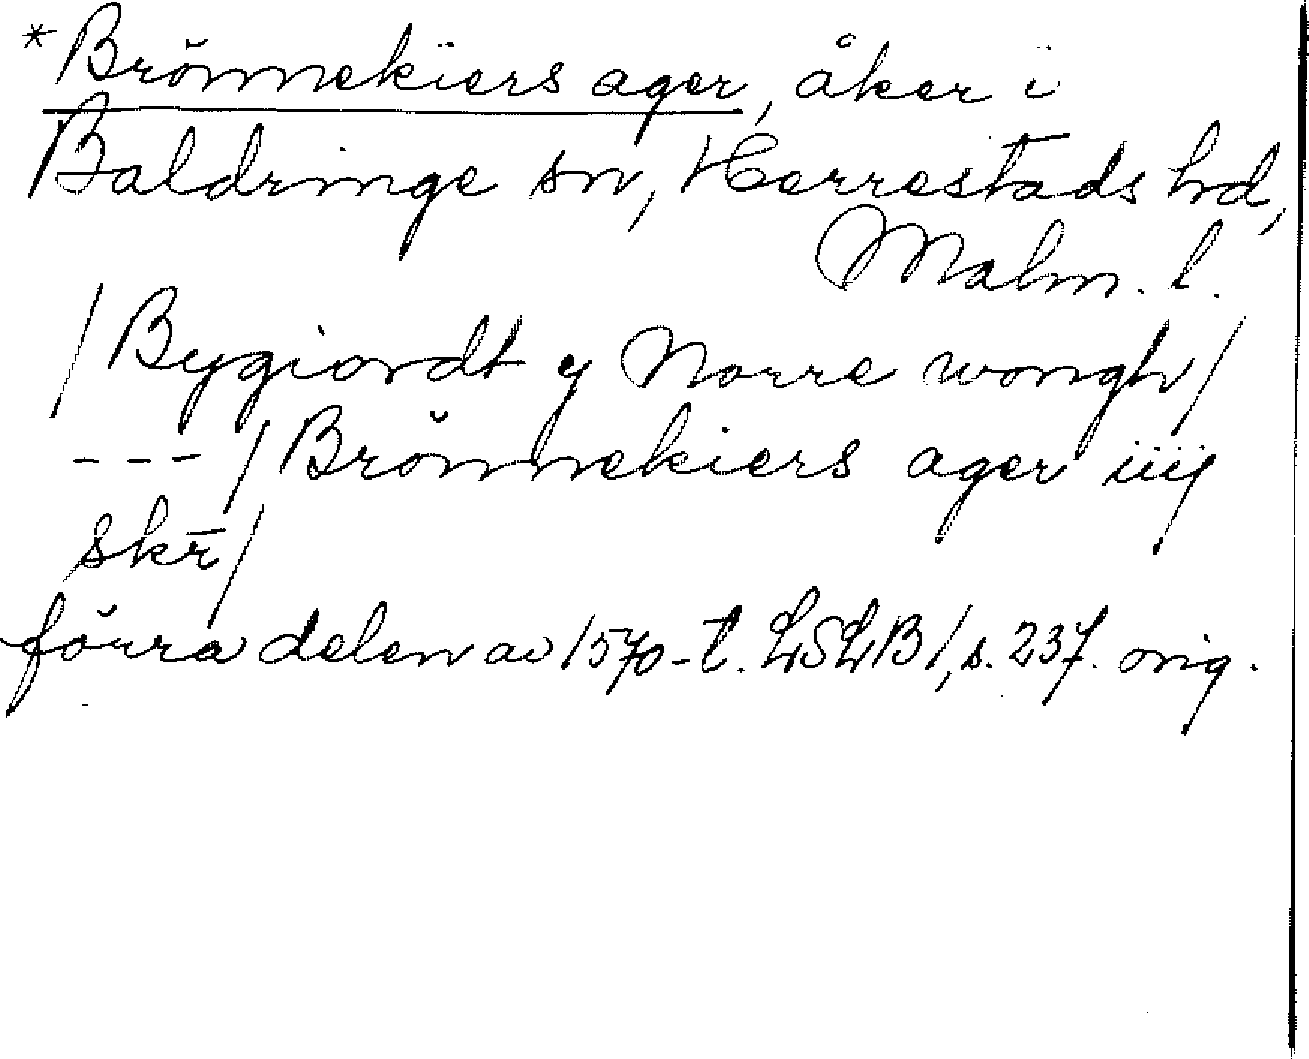 *Brönnekiers ager, åker i
Baldringe sn, Herrestads hd,
Malm. l.
/Bygiordt y Norre wongh/
--- /Brönnekiers ager iiij
skr̄/
förra delen av 1570-t. LSLB1, s. 237. orig.